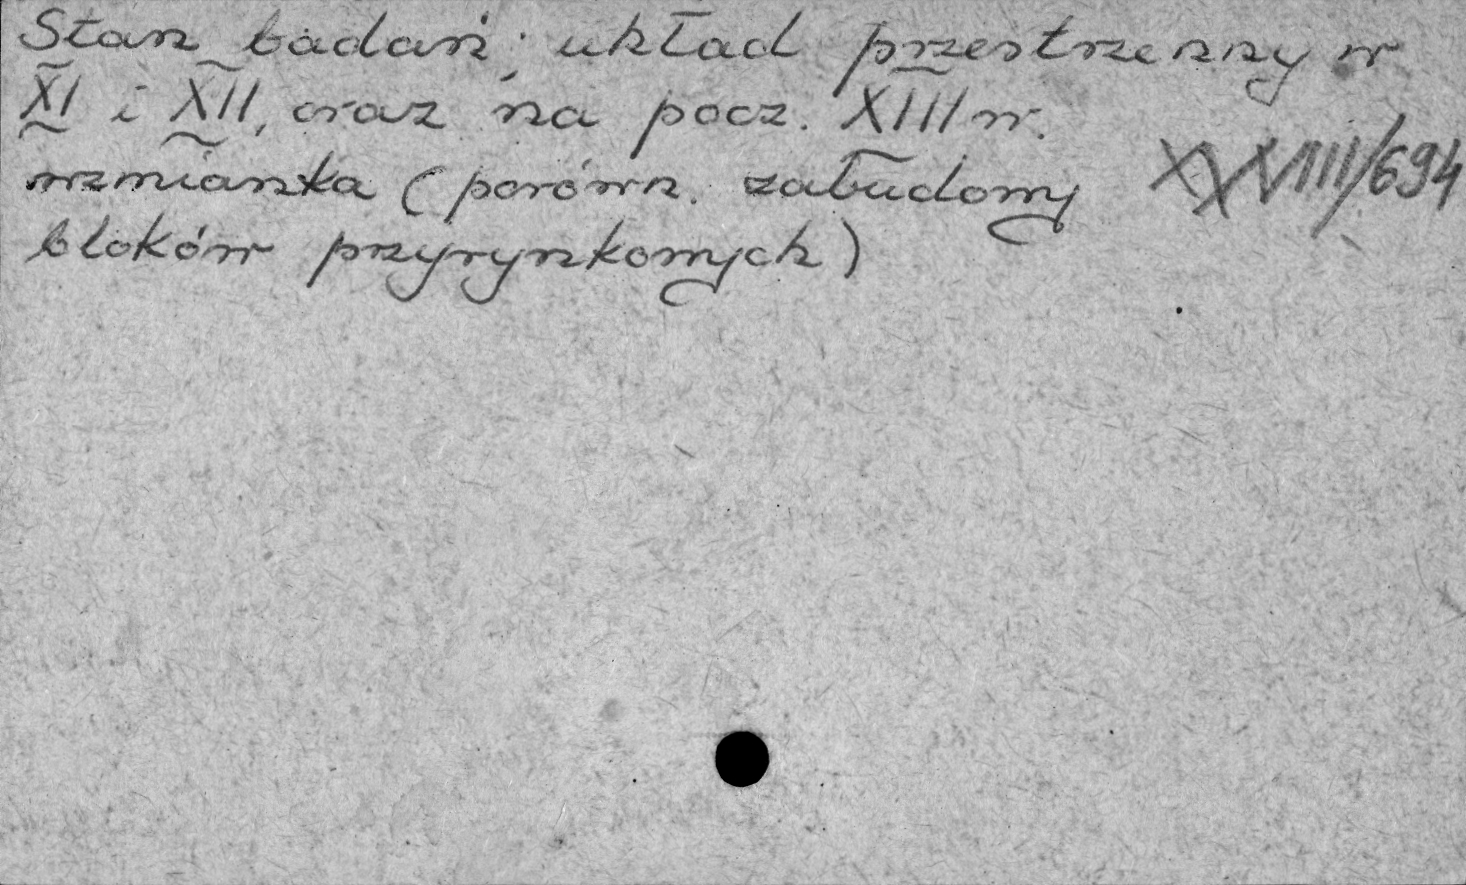 Stan badań; układ przestrzenny w
XI i XII, oraz na pocz. XIII w.
wzmianka (porówn. zabudowy
bloków przyrynkowych)
XXVIII/694